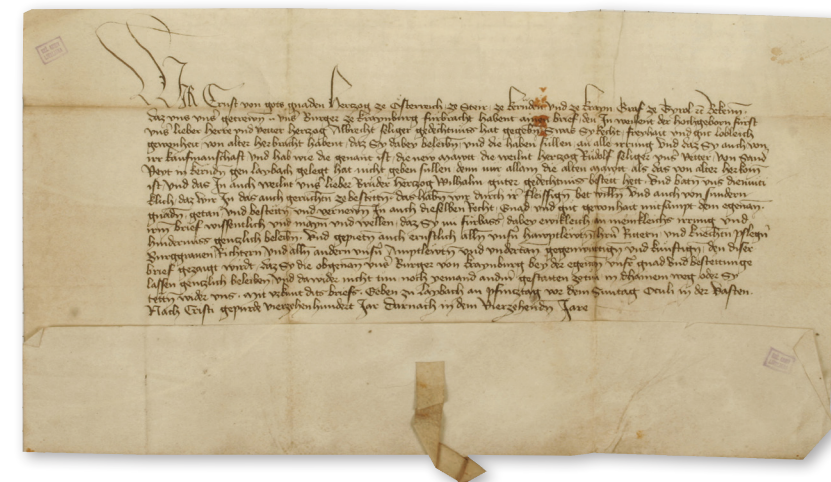 Wir Ernst von gots gnaden Hertzog ze Osterreich ze Steir ze kernden und ze krayn Graf ze Tyrol etc Bekenn
daz uns uns getrewn uns Burger ze krainburg furbracht habent ainen brief den In weilent der hochgeborn furst
uns lieber herre und vetter hertzog Albrecht seliger gedechtnuss hat gegeben Swas Sy Recht freyhait und gut loblich
gewonhait von alter herbracht habent daz Sy dabey beleiben und die haben sullen an alle irrung und daz Sy auch von
irr kaufmanschaft und hab wie die genant ist die new mawtt die weilnt hertzog Rudolf seliger uns Vetter von Sand
Veyt in kernden gen laybach gelegt hat nicht geben sullen denn nur allain die alten mawtt als das von alter herkomen
ist und das In auch weilnt uns lieber Bruder hertzog Wilhalm guter gedechtnuss bestett hett und batn uns diemuti
klich daz wir In das auch geruchten ze bestetten das haben wir durch ir fleissigen bet willen und auch von sundern
gnaden getan und bestetten und vernewen In auch dieselben Recht Gnad und gut gewonhait mitsampt dem egenan
irm brief wissentlich und mayn und wellen daz Sy nu furbass dabey ewikleich an menikleichs irrung und
hindernuss genczlich beleiben Und gepieten auch ernstlich allen unsern hauptlewten herrn Rittern und knechten Pflegern
Burggrauen Richtern und allen andern unsern Amptlewten und undertan gegenwurtigen und kunftigen den diser
brief gezaigt wirdt daz Sy die obgenan uns Burger von krainburg bey der egenen unsr gnad und bestettunge
lassen genczlich beleiben und dawider nicht tun noch yemand andern gestatten ze tun in dhainem weg oder Sy
tetten wider uns mit urkunt dits briefs Geben zu laybach an phincztag vor dem Sunntag Oculi in der Vasten
Nach Cristi gepurde vierzehenhundert Jar darnach in dem vierzehenden Jare